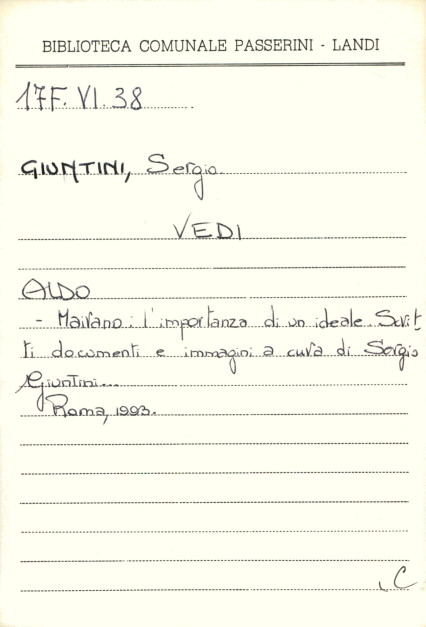 BIBLIOTECA COMUNALE PASSERINI - LANDI
17F. VI. 38
GIUNTINI, Sergio
VEDI
ALDO
- Mairano: l'importanza di un ideale. Scrit_
ti documenti e immagini a cura di Sergio
Giuntini...
Roma, 1993.
C